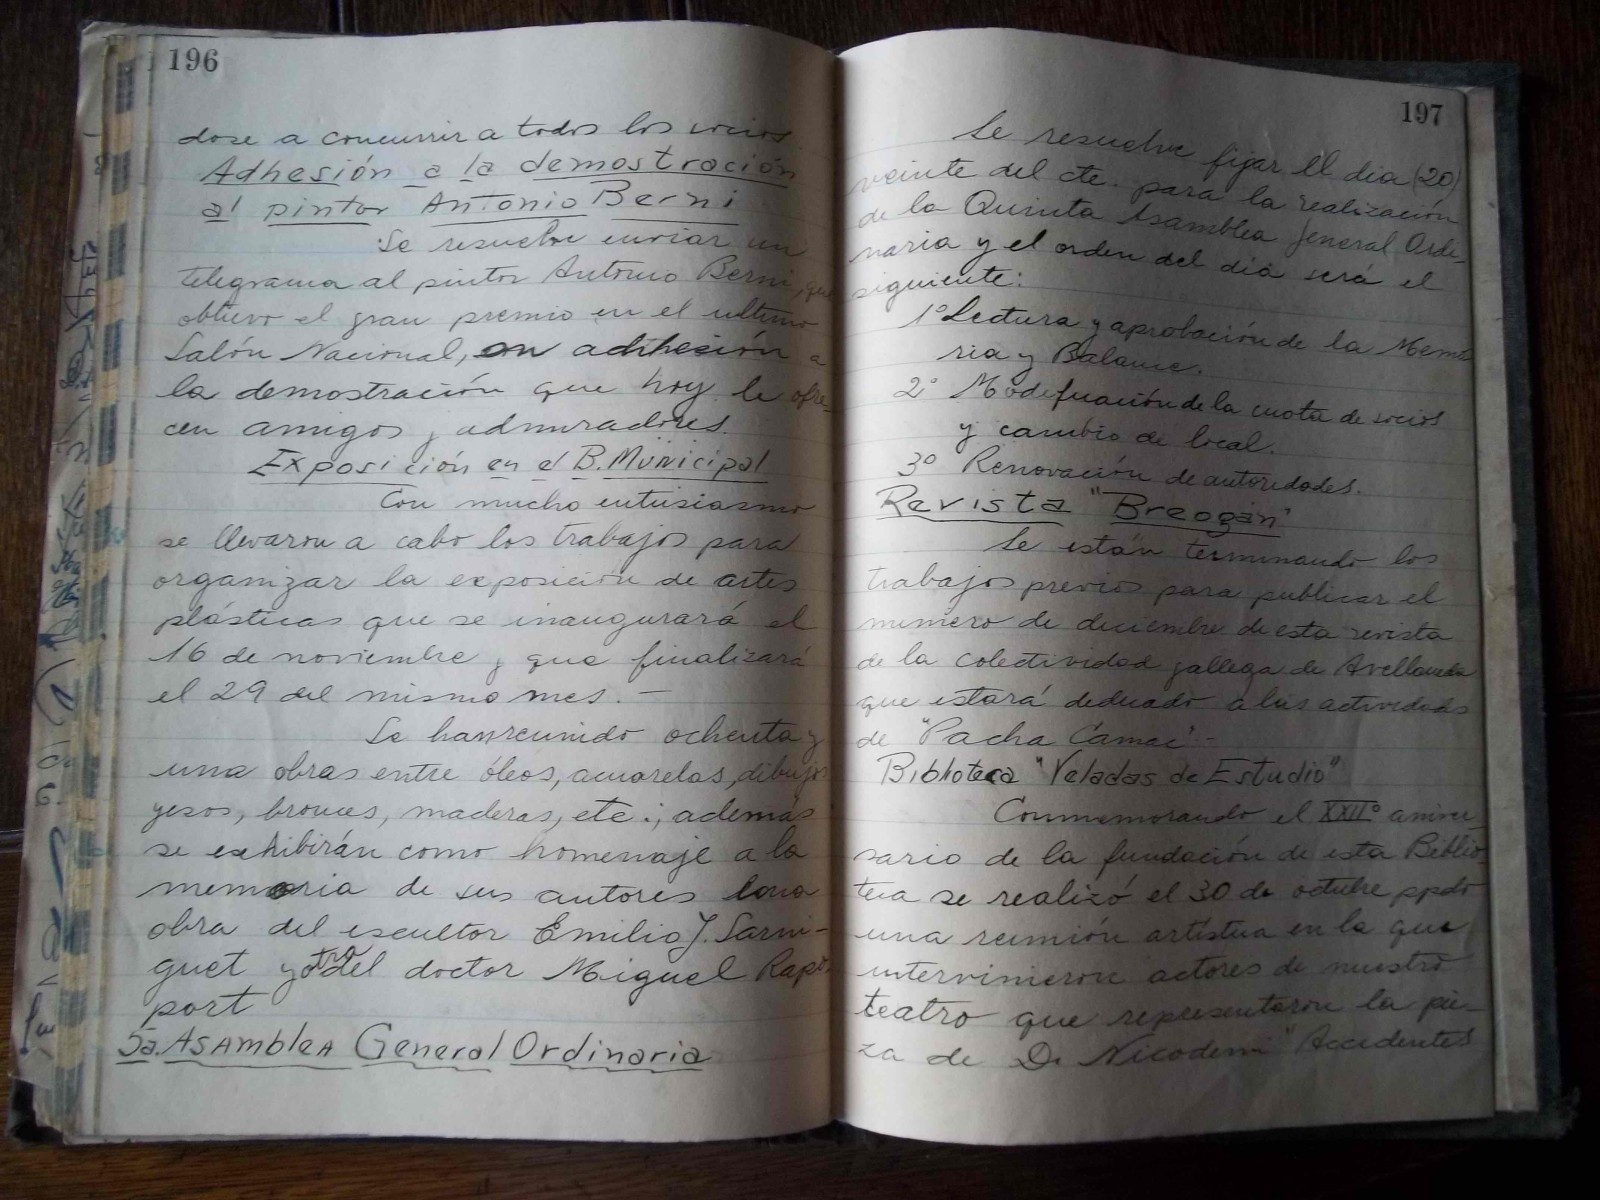 196
dose a concurrir a todos los socios.
Adhesión a la demostración
al pintor Antonio Berni
Se resuelve enviar un
telegrama al pintor Antonio Berni, que
obtuvo el gran premio en el ultimo
Salón Nacional, en adhesión a
la demostración que hoy le ofre-
cen amigos y admiradores.
Exposición en el B. Municipal
Con mucho entusiasmo
se llevaron a cabo los trabajos para
organizar la exposición de artes
plásticas que se inaugurará el
16 de noviembre y que finalizará
el 29 del mismo mes. —
Se han reunido ochenta y
una obras entre óleos, acuarelas, dibujos
yesos, bronces, maderas, etc.; además
se exhibirán como homenaje a la
memoria de sus autores una
obra del escultor Emilio J. Sarni-
guet y otra del doctor Miguel Rapo-
port
5a. Asamblea General Ordinaria
197
Se resuelve fijar el dia (20)
veinte del cte. para la realización
de la Quinta Asamblea General Ordi-
naria y el orden del dia será el
siguiente:
1º Lectura y aprobación de la Memo
ria y Balance.
2º Modificación de la cuota de socios
y cambio de local.
3º Renovación de autoridades.
Revista "Breogán"
Se están terminando los
trabajos previos para publicar el
número de diciembre de esta revista
de la colectividad gallega de Avellaneda
que estará dedicado a las actividades
de "Pacha Camac". -
Biblioteca "Veladas de Estudio"
Conmemorando el XXIIº aniver-
sario de la fundación de esta Biblio
teca se realizó el 30 de octubre ppdo
una reunión artística en la que
intervinieron actores de nuestro
teatro que representaron la pie-
za de D. Nicodemi "Accidentes